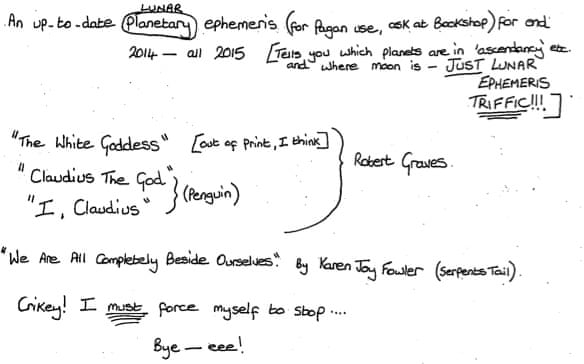 LUNAR
An up-to-date (Planetary) ephemeris (for Pagan use, ask at Bookshop) for end
2014 — all 2015 [Tells you which planets are in 'ascendancy' etc.
and where moon is — JUST LUNAR
EPHEMERIS
TRIFFIC!!!]
"The White Goddess" [out of print, I think]
"Claudius The God"
"I, Claudius" (Penguin)
Robert Graves.
"We Are All Completely Beside Ourselves." By Karen Joy Fowler (Serpents Tail).
Crikey! I must force myself to stop ....
Bye — eee!